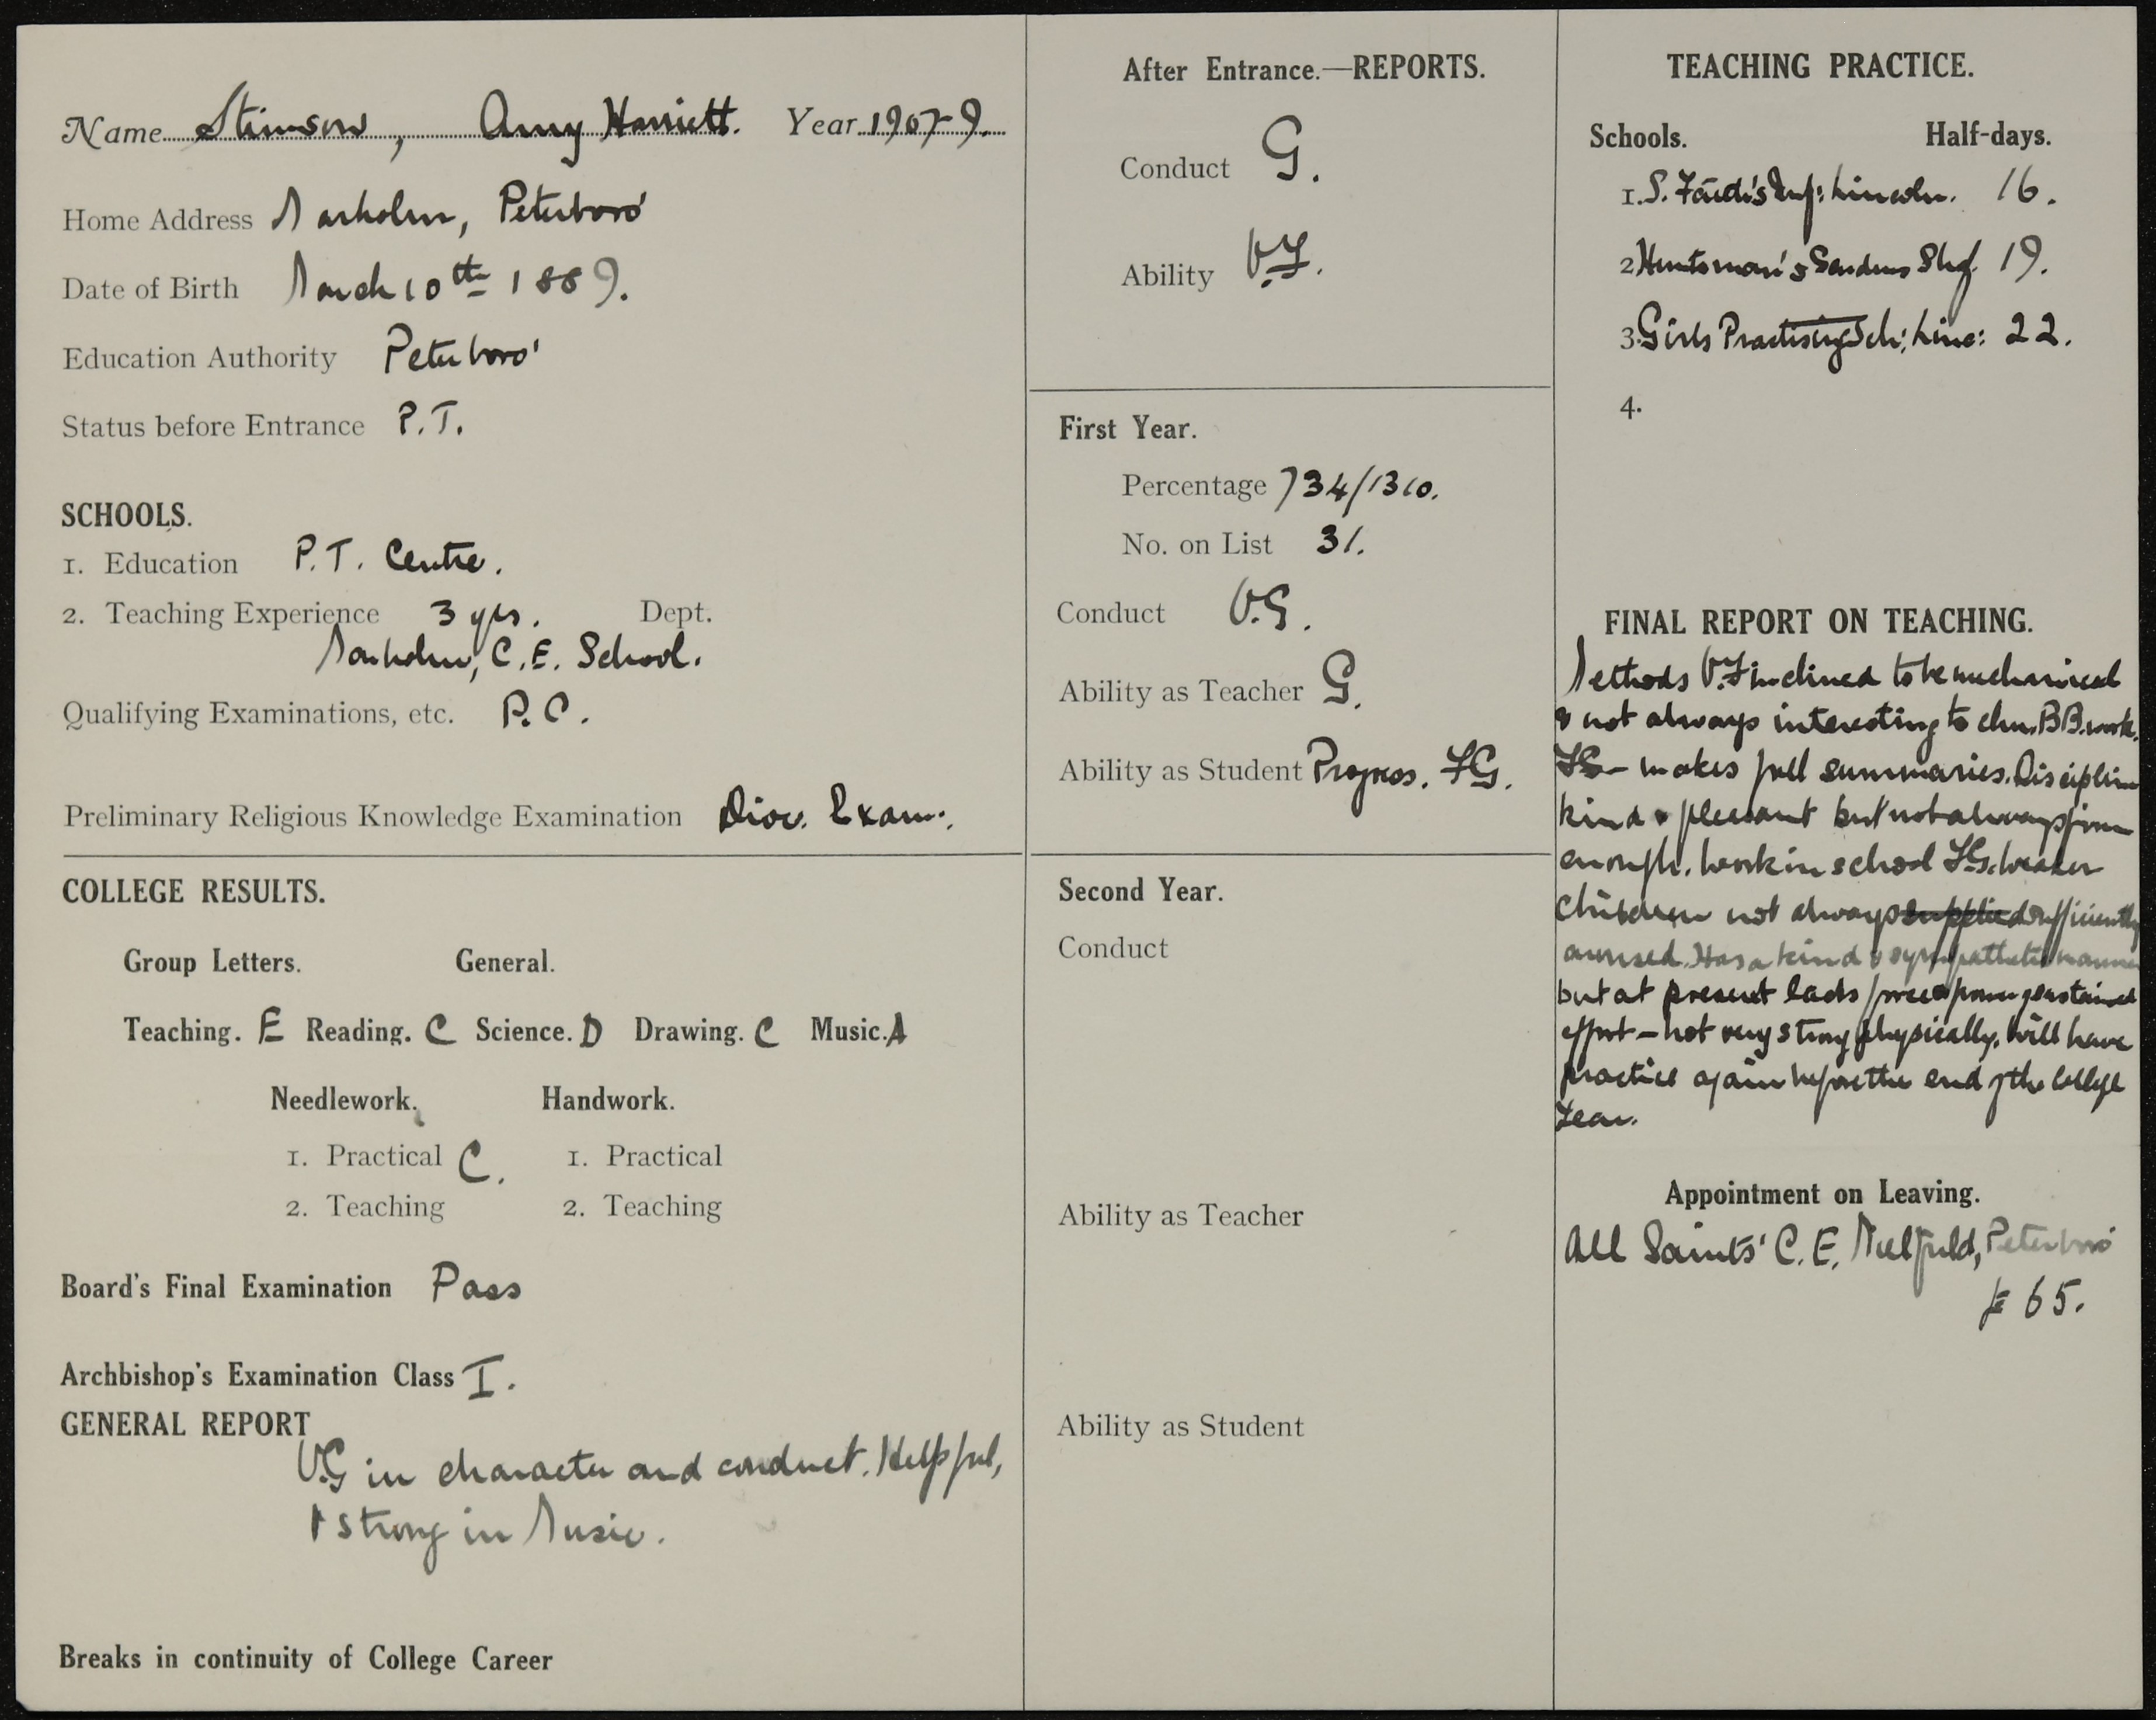 Name Stimson, Amy Harriett. Year 1907-9.
Home Address Marholm, Peterboro'
Date of Birth March 10th 1889.
Education Authority Peterboro'
Status before Entrance P.T.
SCHOOLS.
1. Education P.T. Centre.
2. Teaching Experience 3 yrs. Dept.
Marholm, C.E. School.
Qualifying Examinations, etc. P.C.
Preliminary Religious Knowledge Examination Dioc. Exam:.
COLLEGE RESULTS.
Group Letters. General.
Teaching. E Reading. C Science. D Drawing. C Music. A
Needlework. Handwork.
1. Practical C. 1. Practical
2. Teaching 2. Teaching
Board's Final Examination Pass
Archbishop's Examination Class I.
GENERAL REPORT
V.G in character and conduct. Helpful,
& strong in Music.
Breaks in continuity of College Career
After Entrance.—REPORTS.
Conduct G.
Ability V.F.
First Year.
Percentage 734/1310.
No. on List 31.
Conduct V.G.
Ability as Teacher G.
Ability as Student Progress. FG.
Second Year.
Conduct
Ability as Teacher
Ability as Student
TEACHING PRACTICE.
Schools. Half-days.
1. S. Faith's Inf: Lincoln. 16.
2 Huntsman's Gardens Shef. 19.
3. Girls Practising Sch: Linc: 22.
4.
FINAL REPORT ON TEACHING.
Methods V.F inclined to be mechanical
& not always interesting to chn. BB. work.
FG — makes full summaries. Discipline
kind & pleasant but not always firm
enough. Work in school FG. Weaker
children not always supplied sufficiently
aroused. Has a kind & sympathetic manner
but at present lacks force & power of sustained
effort — not very strong physically. Will have
practice again before the end of the College
Year.
Appointment on Leaving.
All Saints' C.E. Millfield, Peterboro'
£65.